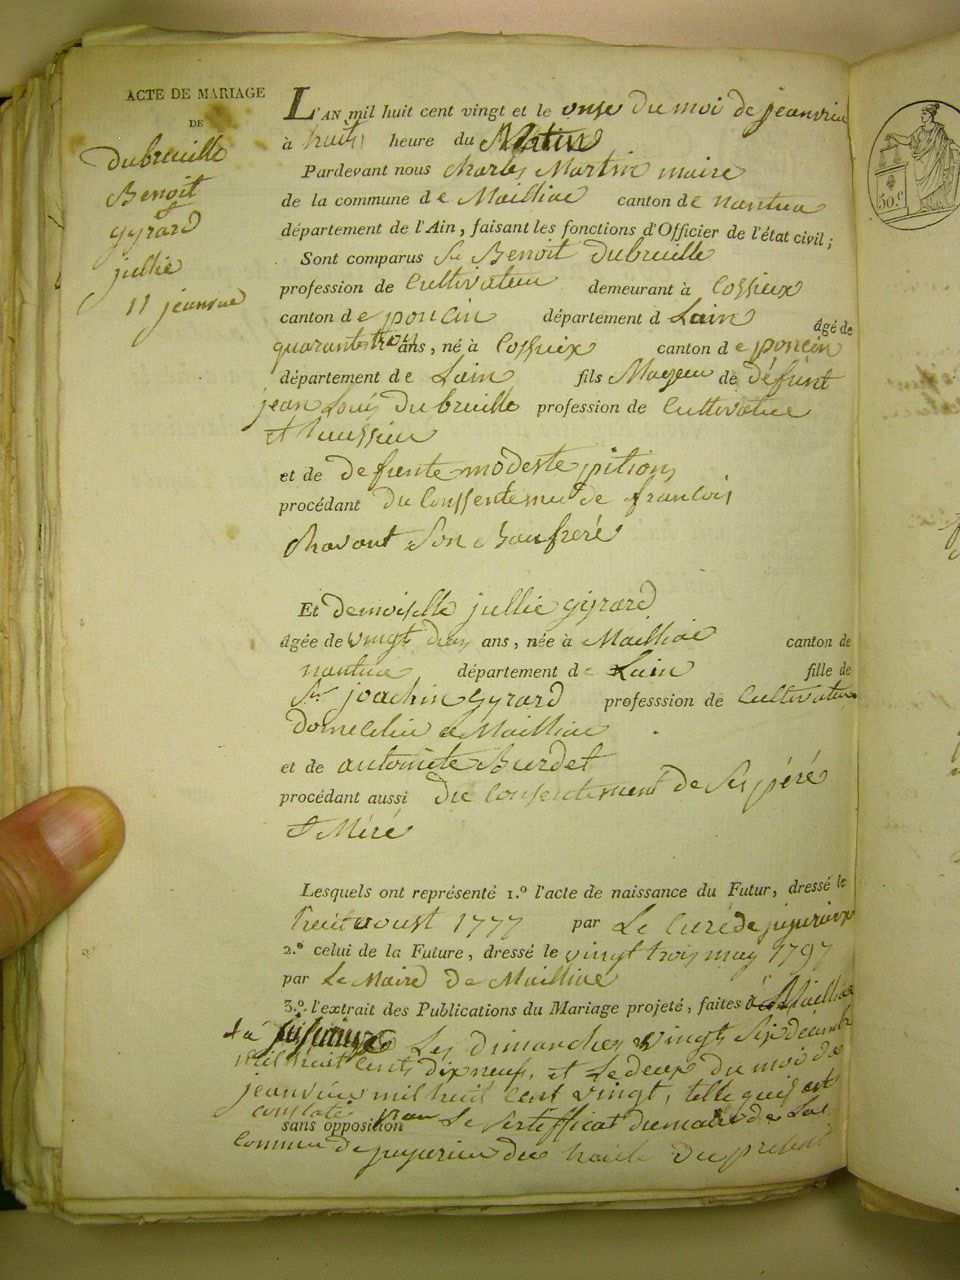 ACTE DE MARIAGE
DE
dubreuille
Benoit
et
gyrard
jullie
11 jeanvie
L'AN mil huit cent vingt et le onse du moi de jeanvier
à huit heure du Matin
Pardevant nous charles Martin maire
de la commune de Mailliac canton de nantua
département de l'Ain, faisant les fonctions d'Officier de l'état civil;
Sont comparus Sr Benoit Dubreuille
profession de Cultivateur demeurant à Cossieux
canton de poncin département d Lain âgé de
quarante trois ans, né à Cossieux canton de poncin
département de Lain fils Majeur de défunt
jean Louis Dubreuille profession de Cultivateur
et huissier
et de defunte modeste pition
procédant du Conssentemen de francois
Chavant Son Baufreré
Et demoiselle jullie gyrard
âgée de vingt deux ans, née à Mailliac canton de
nantua département de Lain fille de
Sr joachin gyrard professsion de Cultivateur
domecilié a Mailliac
et de antoinete Burdet
procédant aussi du Consentement de Ses péré
et Méré
Lesquels ont représenté 1.º l'acte de naissance du Futur, dressé le
huit aoust 1777 par Le Curé de jujurieux
2.º celui de la Future, dressé le vingt trois may 1797
par Le Maire de Mailliac
3.º l'extrait des Publications du Mariage projeté, faites à Mailliac
et a jujurieux Les dimanches vingt Six décembre
mil huit Cents dix neuf, et Le deux du moi de
jeanvier mil huit Cent vingt, telle quil est
constaté
sans opposition par Le Sertifficat du maire de La
Commune de jujurieux du huit du présent
50.c